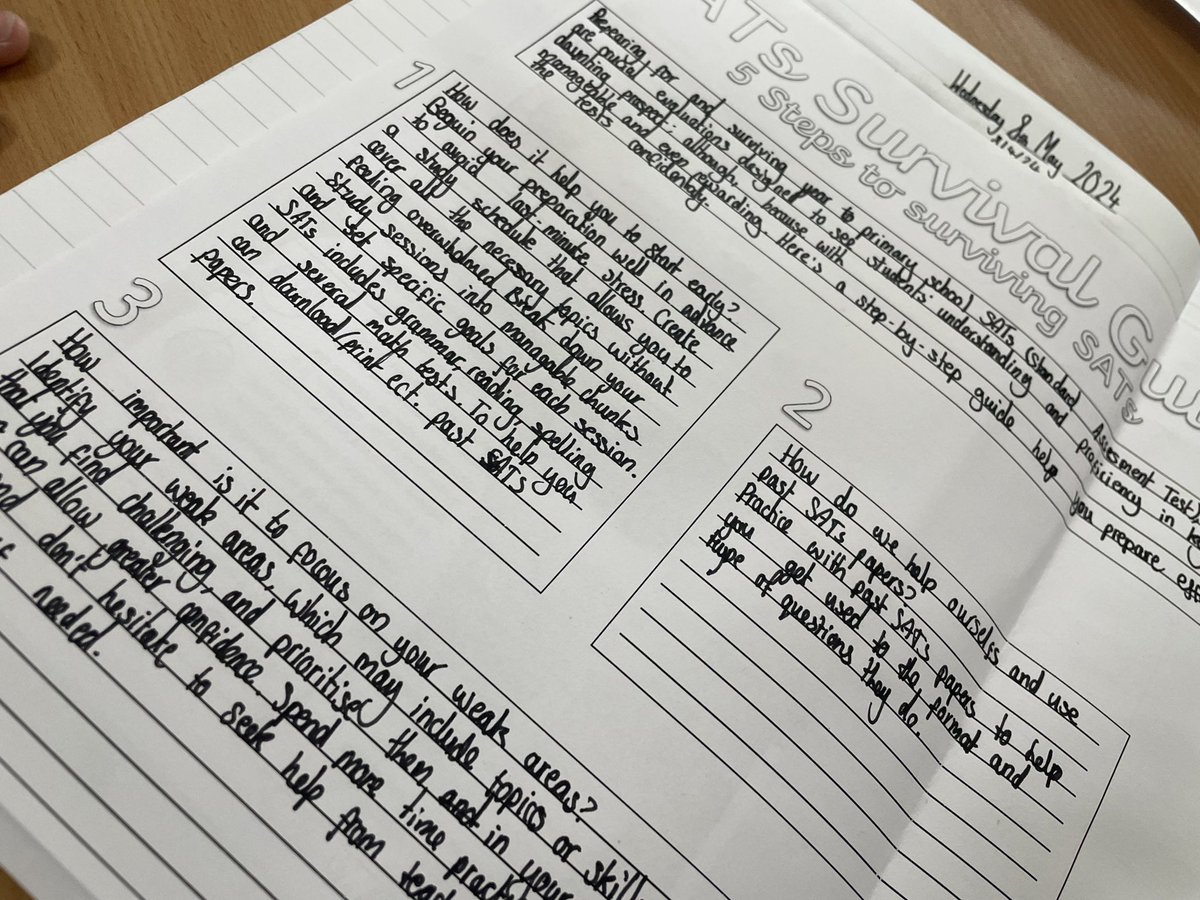 Wednesday 8th May 2024
ATs Survival Gu
5 Steps to surviving SATs
Preparing for and surviving year 6 primary school SATs (Standard Assesment Test)
are crucial evaluations designed to see students understanding and proficiency in
daunting prospect: although, because with
manageable and even rewarding. Here's a step-by-step guide help you prepare
the tests confidently.
1
How does it help you to start early?
Beguin your preparation well in advance
to avoid last-minute stress. Create
a study schedule that allows you to
cover all the necessary topics without
feeling overwhelmed. Break down your
study sessions into managable chunks
and set specific goals for each session.
SATs includes grammar, reading, spelling
and several math tests. To help you
can download/print ect. past SATs
papers.
2
How do we help ourselfs and use
past SATs papers?
Practice with past SATs papers to help
you get used to the format and
type of questions they do.
3
How important is it to focous on your weak areas?
Identify your weak areas, which may include topics or skill
that you find challenging, and prioritise them in your
can allow greater confidence. Spend more time
and don't hesitate to seek help from
if needed.